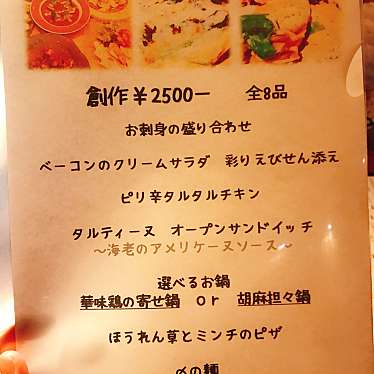 創作￥2500― 全8品
お刺身の盛り合わせ
ベーコンのクリームサラダ 彩りえびせん添え
ピリ辛タルタルチキン
タルティーヌ オープンサンドイッチ
～海老のアメリケーヌソース～
選べるお鍋
華味鶏の寄せ鍋 Or 胡麻担々鍋
ほうれん草とミンチのピザ
〆の麺